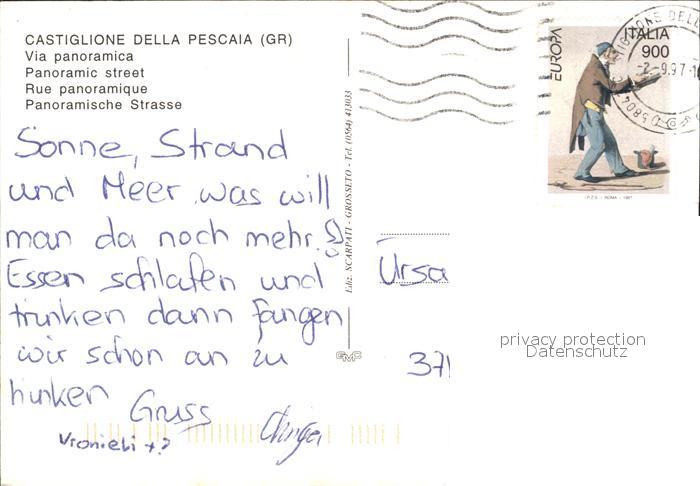 CASTIGLIONE DELLA PESCAIA (GR)
Via panoramica
Panoramic street
Rue panoramique
Panoramische Strasse
Sonne, Strand
und Meer was will
man da noch mehr?!
Essen schlafen und
trinken dann fangen
wir schon an zu
hinken
Gruss
Ediz. SCARPATI - GROSSETO - Tel. (0564) 413033
GMP
EUROPA
ITALIA
900
I.P.Z.S. - ROMA - 1997
-9.97-1
Ursa
371
privacy protection
Datenschutz